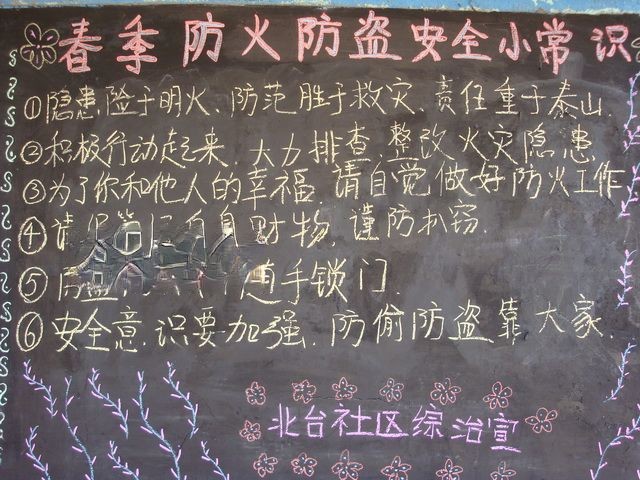 春季防火防盗安全小常识
①隐患险于明火、防范胜于救灾、责任重于泰山.
②积极行动起来、大力排查、整改火灾隐患.
③为了你和他人的幸福.请自觉做好防火工作
④请 自身财物.谨防扒窃.
⑤防盗 随手锁门.
⑥安全意识要加强.防偷防盗靠大家.
北台社区综治宣